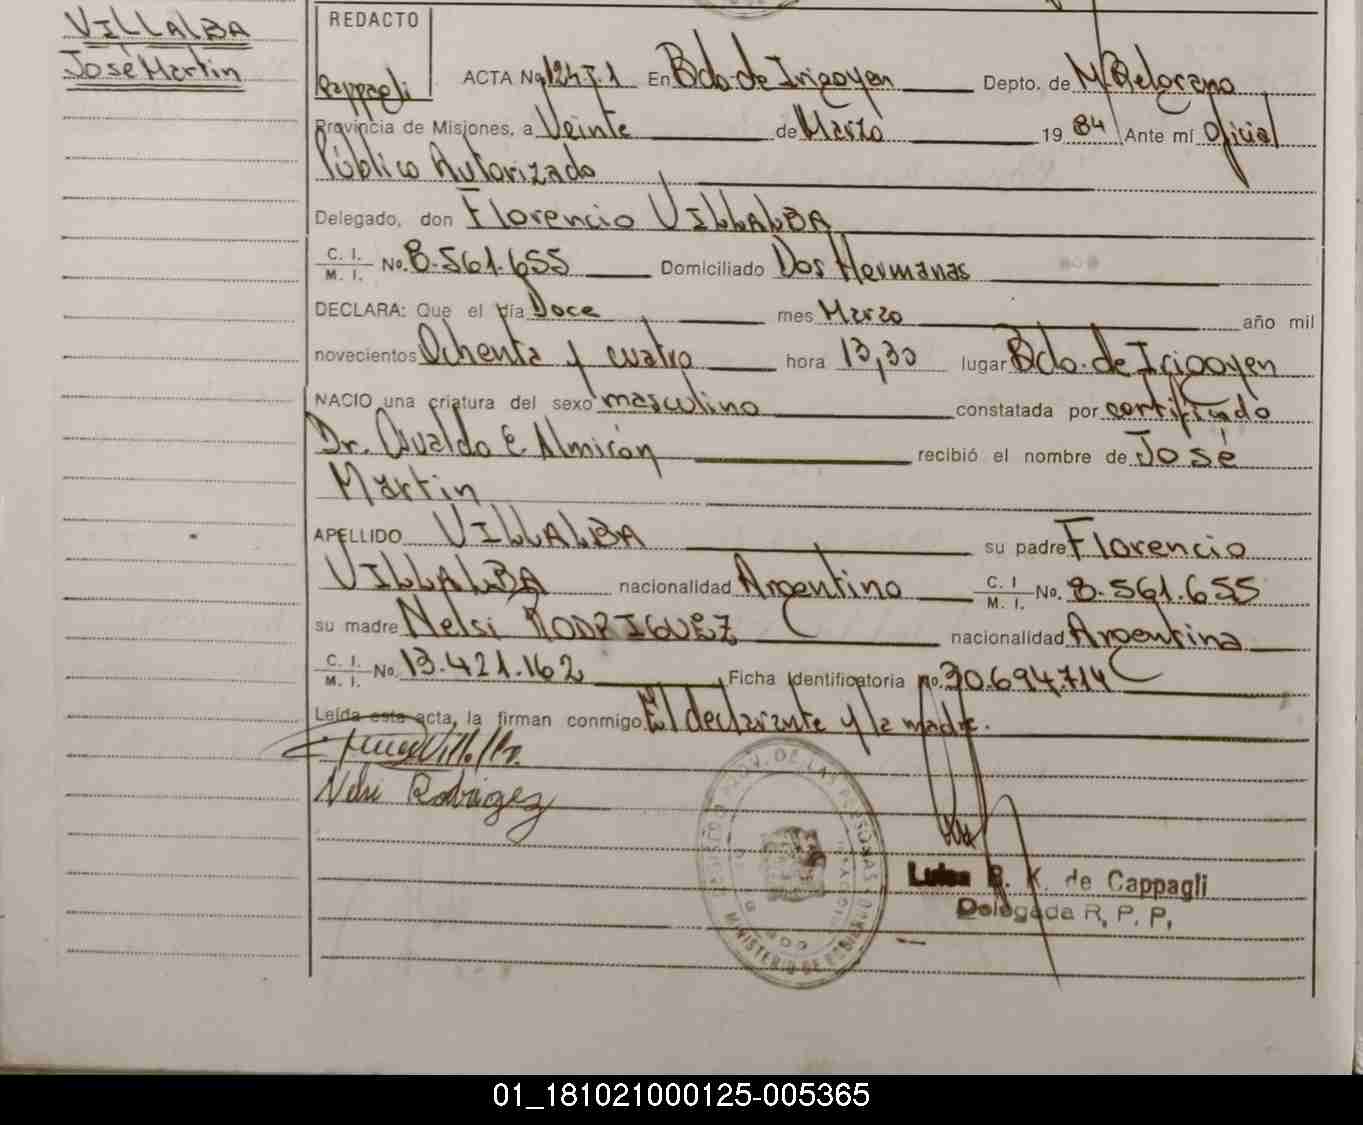 VILLALBA
José Martin
REDACTO
Cappagli
ACTA No 124 T. 1 En Bdo. de Irigoyen Depto. de M. Belgrano
Provincia de Misiones, a Veinte de Marzo 1984 Ante mí Oficial
Público Autorizado
Delegado, don Florencio VILLALBA
C. I.
M. I. No. 8.561.655 Domiciliado Dos Hermanas
DECLARA: Que el día Doce mes Marzo año mil
novecientos Ochenta y cuatro hora 13,30 lugar Bdo. de Irigoyen
NACIO una criatura del sexo masculino constatada por certificado
Dr. Osvaldo E. Almirón recibió el nombre de José
Martin
APELLIDO VILLALBA su padre Florencio
VILLALBA nacionalidad Argentino C. I. M. I. No. 8.561.655
su madre Nelsi RODRIGUEZ nacionalidad Argentina
C. I.
M. I. No. 13.421.162 Ficha Identificatoria no. 30.694.714
Leída esta acta, la firman conmigo El declarante y la madre.
Nelsi Rodriguez
PROV. DE LAS PERSONAS
MINISTERIO DE GOBIERNO
Luisa B. K. de Cappagli
Delegada R. P. P.
01_181021000125-005365